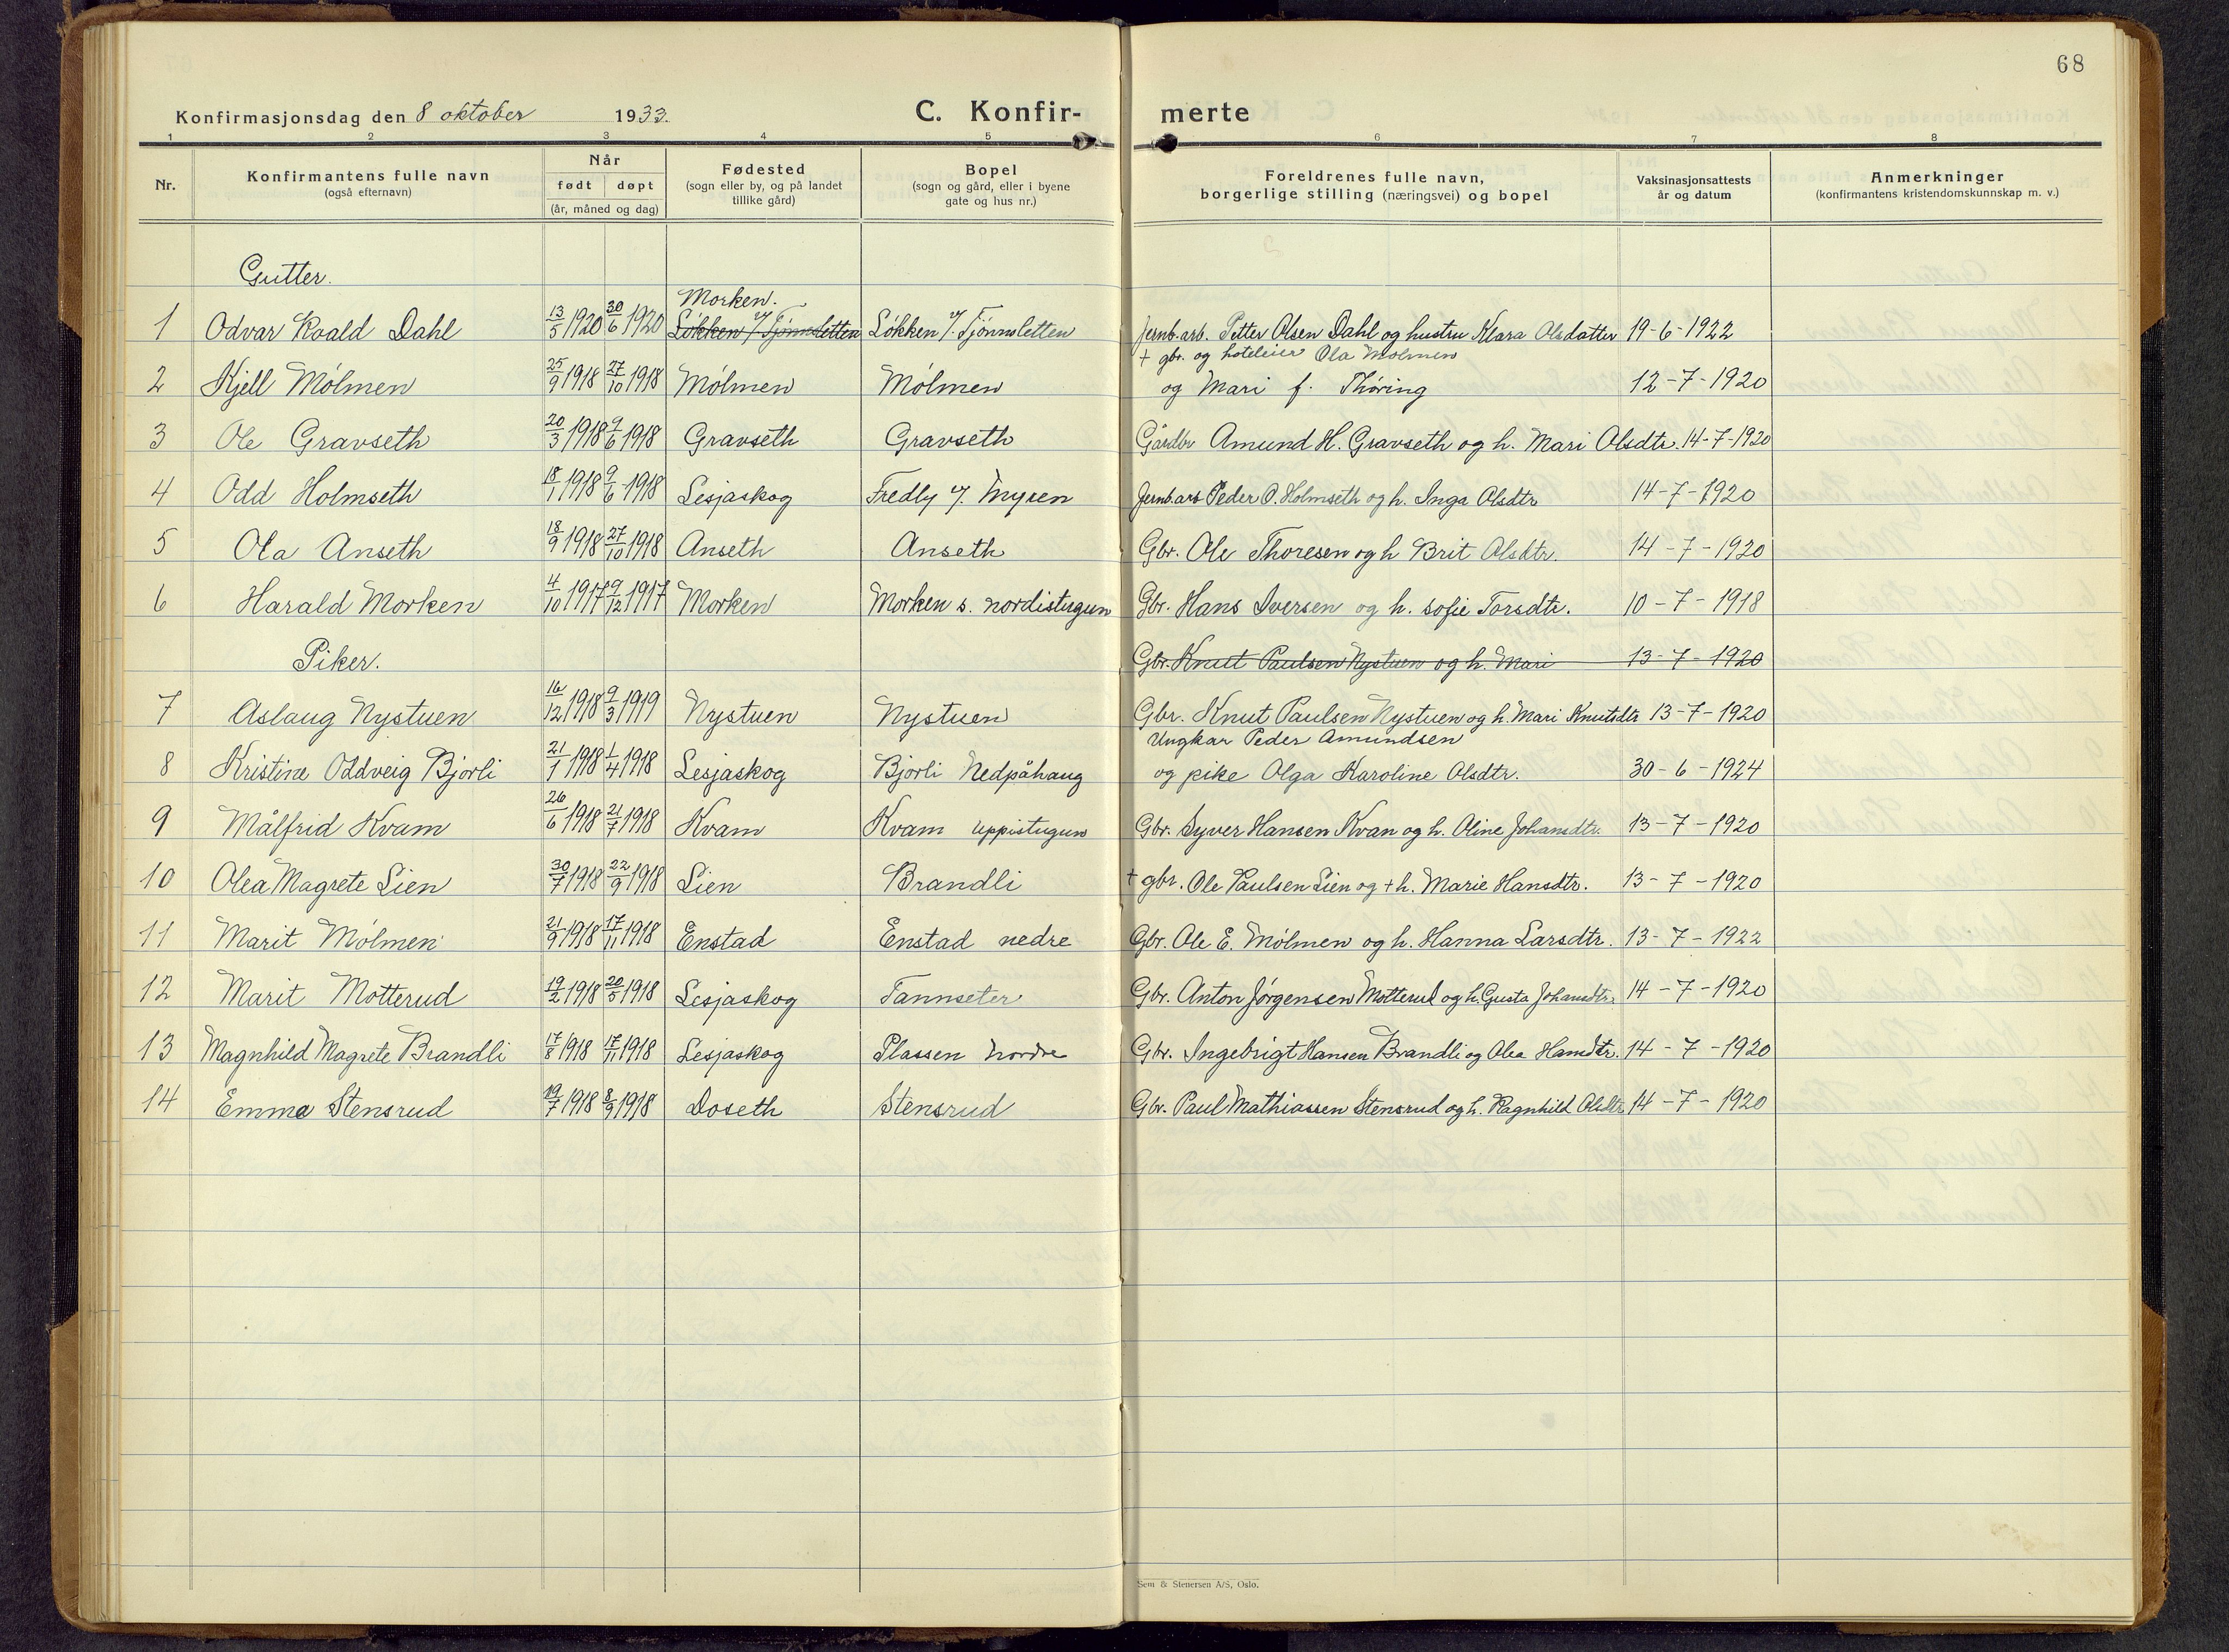 68
Konfirmasjonsdag den 8 oktober 1933.
C. Konfir-
merte
1 2 3 4 5 6 7 8
Nr.
Konfirmantens fulle navn
(også efternavn)
Når
født døpt
(år, måned og dag)
Fødested
(sogn eller by, og på landet
tillike gård)
Bopel
(sogn og gård, eller i byene
gate og hus nr.)
Foreldrenes fulle navn,
borgerlige stilling (næringsvei) og bopel
Vaksinasjonsattests
år og datum
Anmerkninger
(konfirmantens kristendomskunnskap m. v.)
Gutter.
Morken.
1 Odvar Roald Dahl 13/5 1920 30/6 1920 Løkken / Tjønnsletten Løkken / Tjønnsletten Jernb.arb. Petter Olsen Dahl og hustru Klara Olsdatter 19-6-1922
+ gbr. og hoteleier Ola Mølmen
2 Kjell Mølmen 25/9 1918 27/10 1918 Mølmen Mølmen og Mari f. Thøring 12-7-1920
3 Ole Gravseth 20/3 1918 9/6 1918 Gravseth Gravseth Gårdbr Amund H. Gravseth og h. Mari Olsdtr. 14-7-1920
4 Odd Holmseth 18/1 1918 9/6 1918 Lesjaskog Fredly / Myren Jernb.arb Peder O. Holmseth og h. Inga Olsdtr 14-7-1920
5 Ola Anseth 18/9 1918 27/10 1918 Anseth Anseth Gbr. Ole Thoresen og h Brit Olsdtr. 14-7-1920
6 Harald Morken 4/10 1917 9/12 1917 Morken Morken s. nordistugun Gbr. Hans Iversen og h. Sofie Torsdtr. 10-7-1918
Piker. Gbr. Knut Paulsen Nystuen og h. Mari 13-7-1920
7 Aslaug Nystuen 16/12 1918 9/3 1919 Nystuen Nystuen Gbr. Knut Paulsen Nystuen og h. Mari Knutsdtr 13-7-1920
Ungkar Peder Amundsen
8 Kristine Oddveig Bjorli 21/1 1918 1/4 1918 Lesjaskog Bjorli Nedpåhaug og pike Olga Karoline Olsdtr. 30-6-1924
9 Målfrid Kvam 26/6 1918 21/7 1918 Kvam Kvam uppistugun Gbr. Syver Hansen Kvan og h. Oline Johansdtr. 13-7-1920
10 Olea Magrete Lien 30/7 1918 22/9 1918 Lien Brandli + gbr. Ole Paulsen Lien og + h. Marie Hansdtr. 13-7-1920
11 Marit Mølmen 21/9 1918 17/11 1918 Enstad Enstad nedre Gbr. Ole E. Mølmen og h. Hanna Larsdtr. 13-7-1922
12 Marit Motterud 19/2 1918 20/5 1918 Lesjaskog Tannseter Gbr. Anton Jørgensen Motterud og h. Gusta Johansdtr. 14-7-1920
13 Magnhild Magrete Brandli 17/8 1918 17/11 1918 Lesjaskog Plassen nordre Gbr. Ingebrigt Hansen Brandli og Olea Hansdtr. 14-7-1920
14 Emma Stensrud 19/7 1918 8/9 1918 Doseth Stensrud Gbr. Paul Mathiassen Stensrud og h. Ragnhild Olsdtr 14-7-1920
Sem & Stenersen A/S, Oslo.